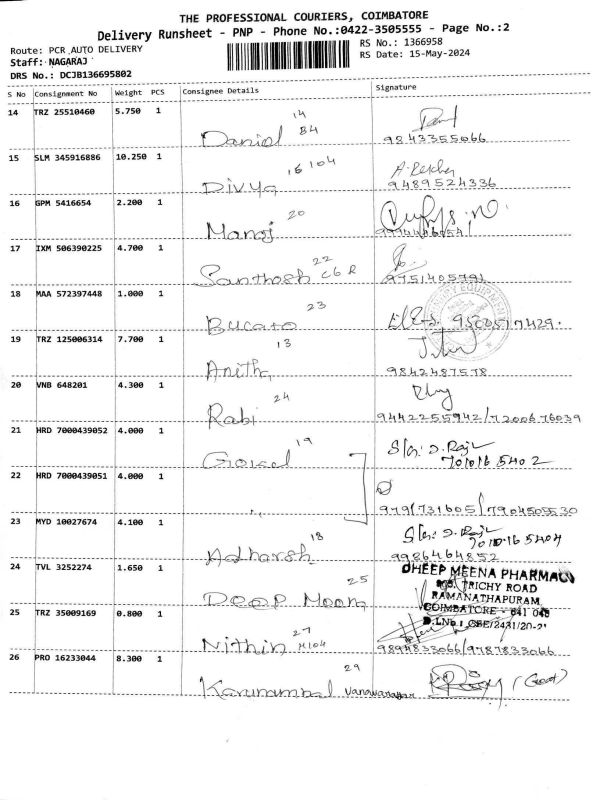 THE PROFESSIONAL COURIERS, COIMBATORE
Delivery Runsheet - PNP - Phone No.:0422-3505555 - Page No.:2
Route: PCR AUTO DELIVERY
RS No.: 1366958
Staff: NAGARAJ
RS Date: 15-May-2024
DRS No.: DCJB136695802
S No Consignment No Weight PCS Consignee Details Signature
14 TRZ 25510460 5.750 1
14
Daniel B4
9843355066
15 SLM 345916886 10.250 1
16 104
Divya
9489524336
16 GPM 5416654 2.200 1
20
Manoj
17 IXM 506390225 4.700 1
22
Santhosh C6 R
9751405791
18 MAA 572397448 1.000 1
23
Bucato
9500517429.
19 TRZ 125006314 7.700 1
13
Anitha
9842487578
20 VNB 648201 4.300 1
24
Rabi
9442255942/7200676039
21 HRD 7000439052 4.000 1
19
701016 5402
22 HRD 7000439051 4.000 1
979/731605/7904505530
23 MYD 10027674 4.100 1
18
Adharsh
9986464852
24 TVL 3252274 1.650 1
25
Deep Meena
DHEEP MEENA PHARMACY
TRICHY ROAD
RAMANATHAPURAM
COIMBATORE - 641 045
25 TRZ 35009169 0.800 1
27
Nithin H104
9894833066/9787833066
26 PRO 16233044 8.300 1
29